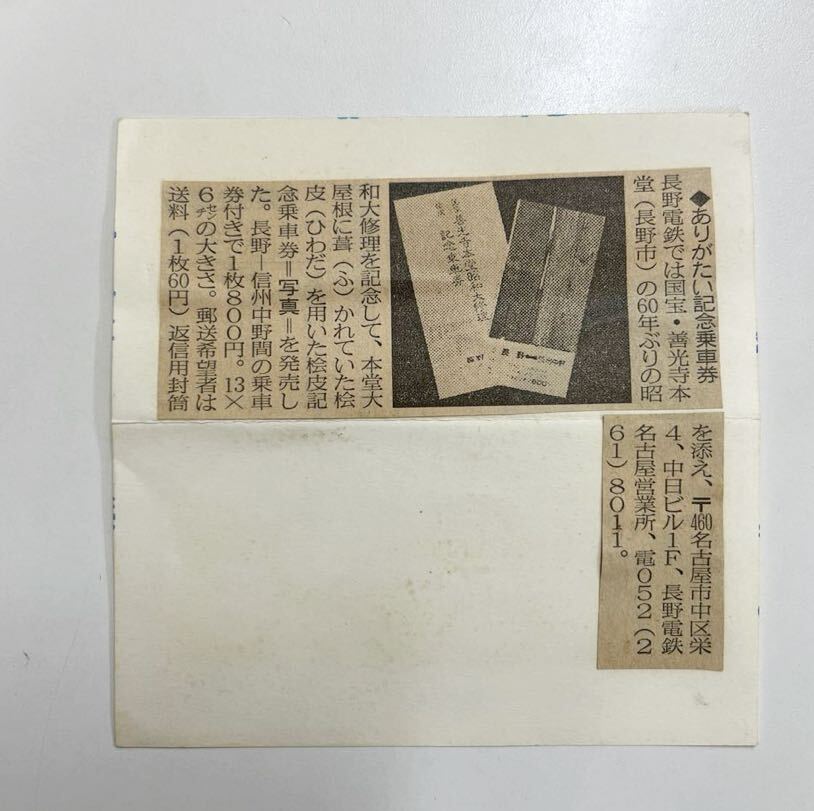 ◆ありがたい記念乗車券
長野電鉄では国宝・善光寺本
堂（長野市）の60年ぶりの昭
和大修理を記念して、本堂大
屋根に葺（ふ）かれていた桧
皮（ひわだ）を用いた桧皮記
念乗車券＝写真＝を発売し
た。長野―信州中野間の乗車
券付きで1枚800円。13×
6センチの大きさ。郵送希望者は
送料（1枚60円）返信用封筒
を添え、〒460名古屋市中区栄
4、中日ビル1F、長野電鉄
名古屋営業所、電052（2
61）8011。
善光寺本堂昭和大修理
記念乗車券
長野